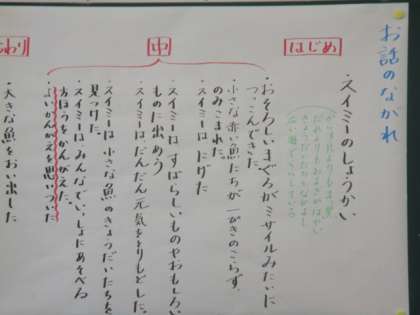 お話のながれ
はじめ
・スイミーのしょうかい
中
・おそろしいまぐろがミサイルみたいに
つっこんできた
・小さな赤い魚たちが一ぴきのこらず
のみこまれた。
・スイミーはにげた
・スイミーはすばらしいものやおもしろい
ものに出あう
・スイミーはだんだん元気をとりもどした。
・スイミーは小さな魚のきょうだいたちを
見つけた。
・スイミーはみんなでいっしょにあそべる
ほうほうをかんがえた。
かんがえを思いついた
わり
・大きな魚をおい出した